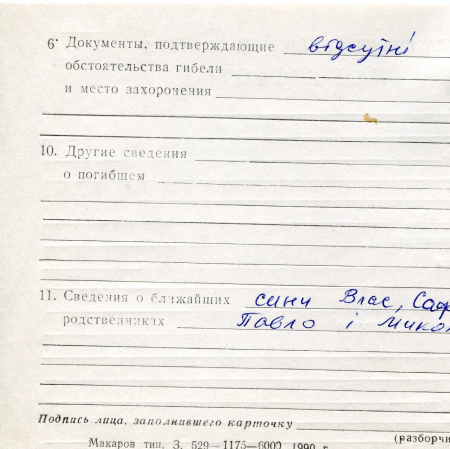 6· Документы, подтверждающие відсутні
обстоятельства гибели
и место захорочения
10. Другие сведения
о погибшем
11. Сведения о ближайших сини Влас,
родственниках Павло і
Подпись лица, заполнившего карточку
(разборчи
Макаров тип. З. 529—1175—6000 1990 г